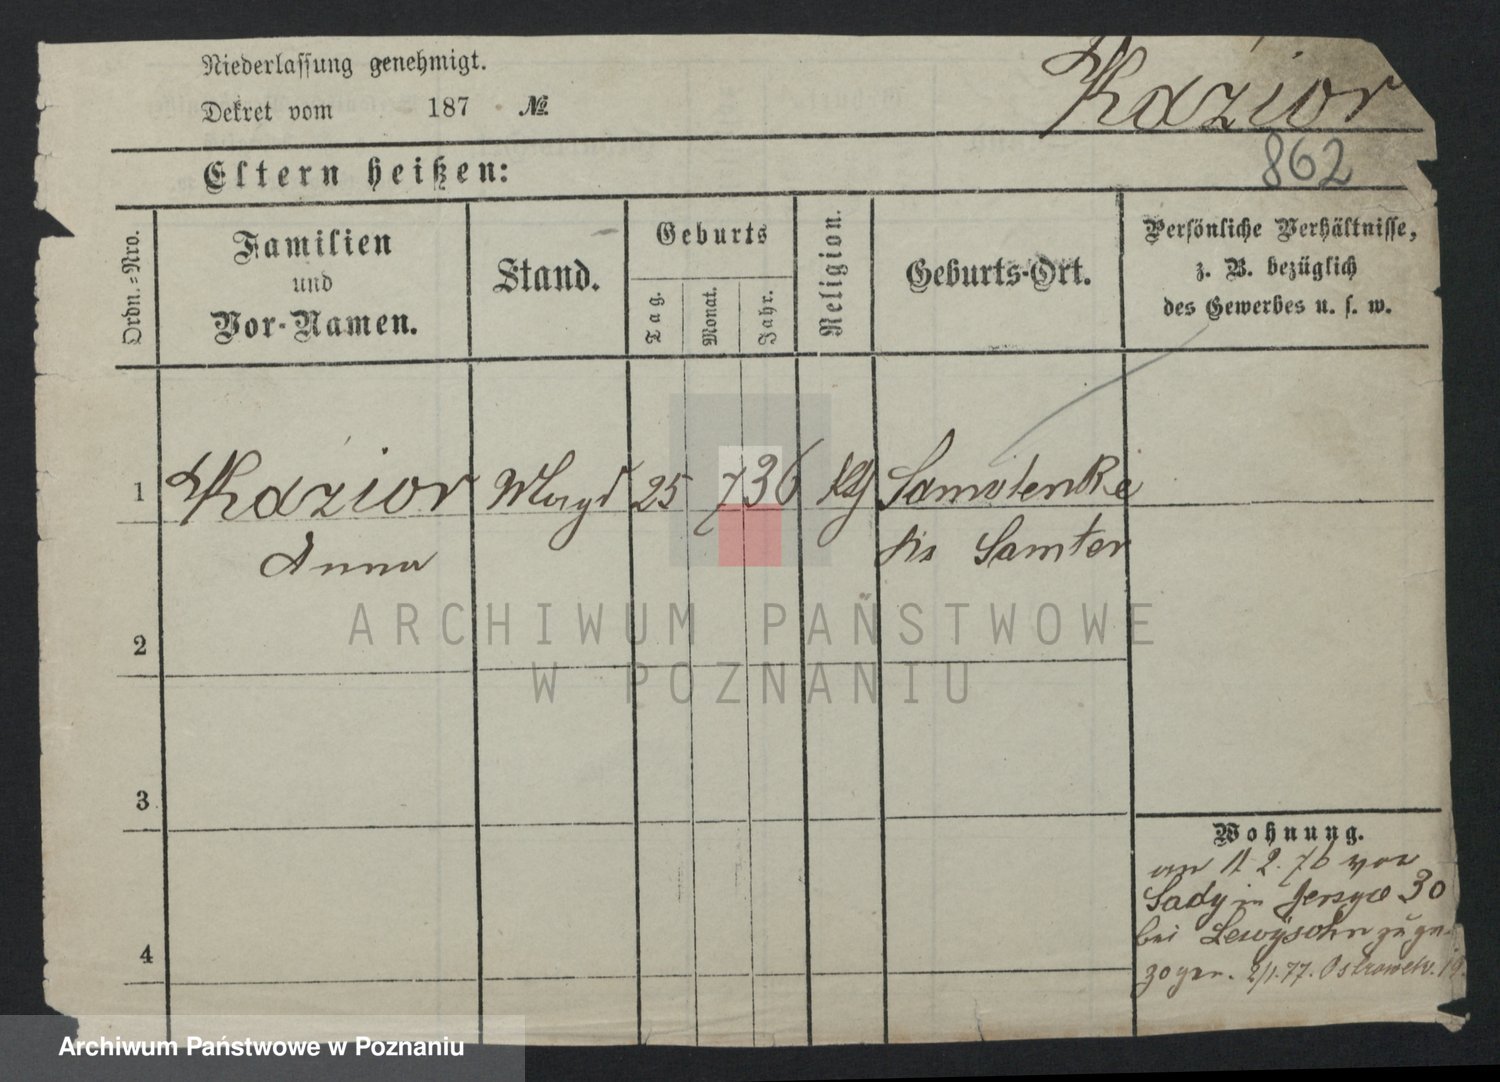 Niederlassung genehmigt.
Dekret vom 187 №
Kazior
862
Eltern heißen:
Ordn.-Nro.
Familien
und
Vor-Namen.
Stand.
Geburts
Tag.
Monat.
Jahr.
Religion.
Geburts-Ort.
Persönliche Verhältnisse,
z. B. bezüglich
des Gewerbes u. s. w.
1 Kazior Magd 25 7 36 Samolenke
Anna Krs Samter
2
3
4
Wohnung.
am 11 2. 76 von
Sady in Jersyce 30
bei Lewÿsohn zuge-
zogen. 2/1. 77. Ostrowstr. 19.
ARCHIWUM PAŃSTWOWE
W POZNANIU
Archiwum Państwowe w Poznaniu